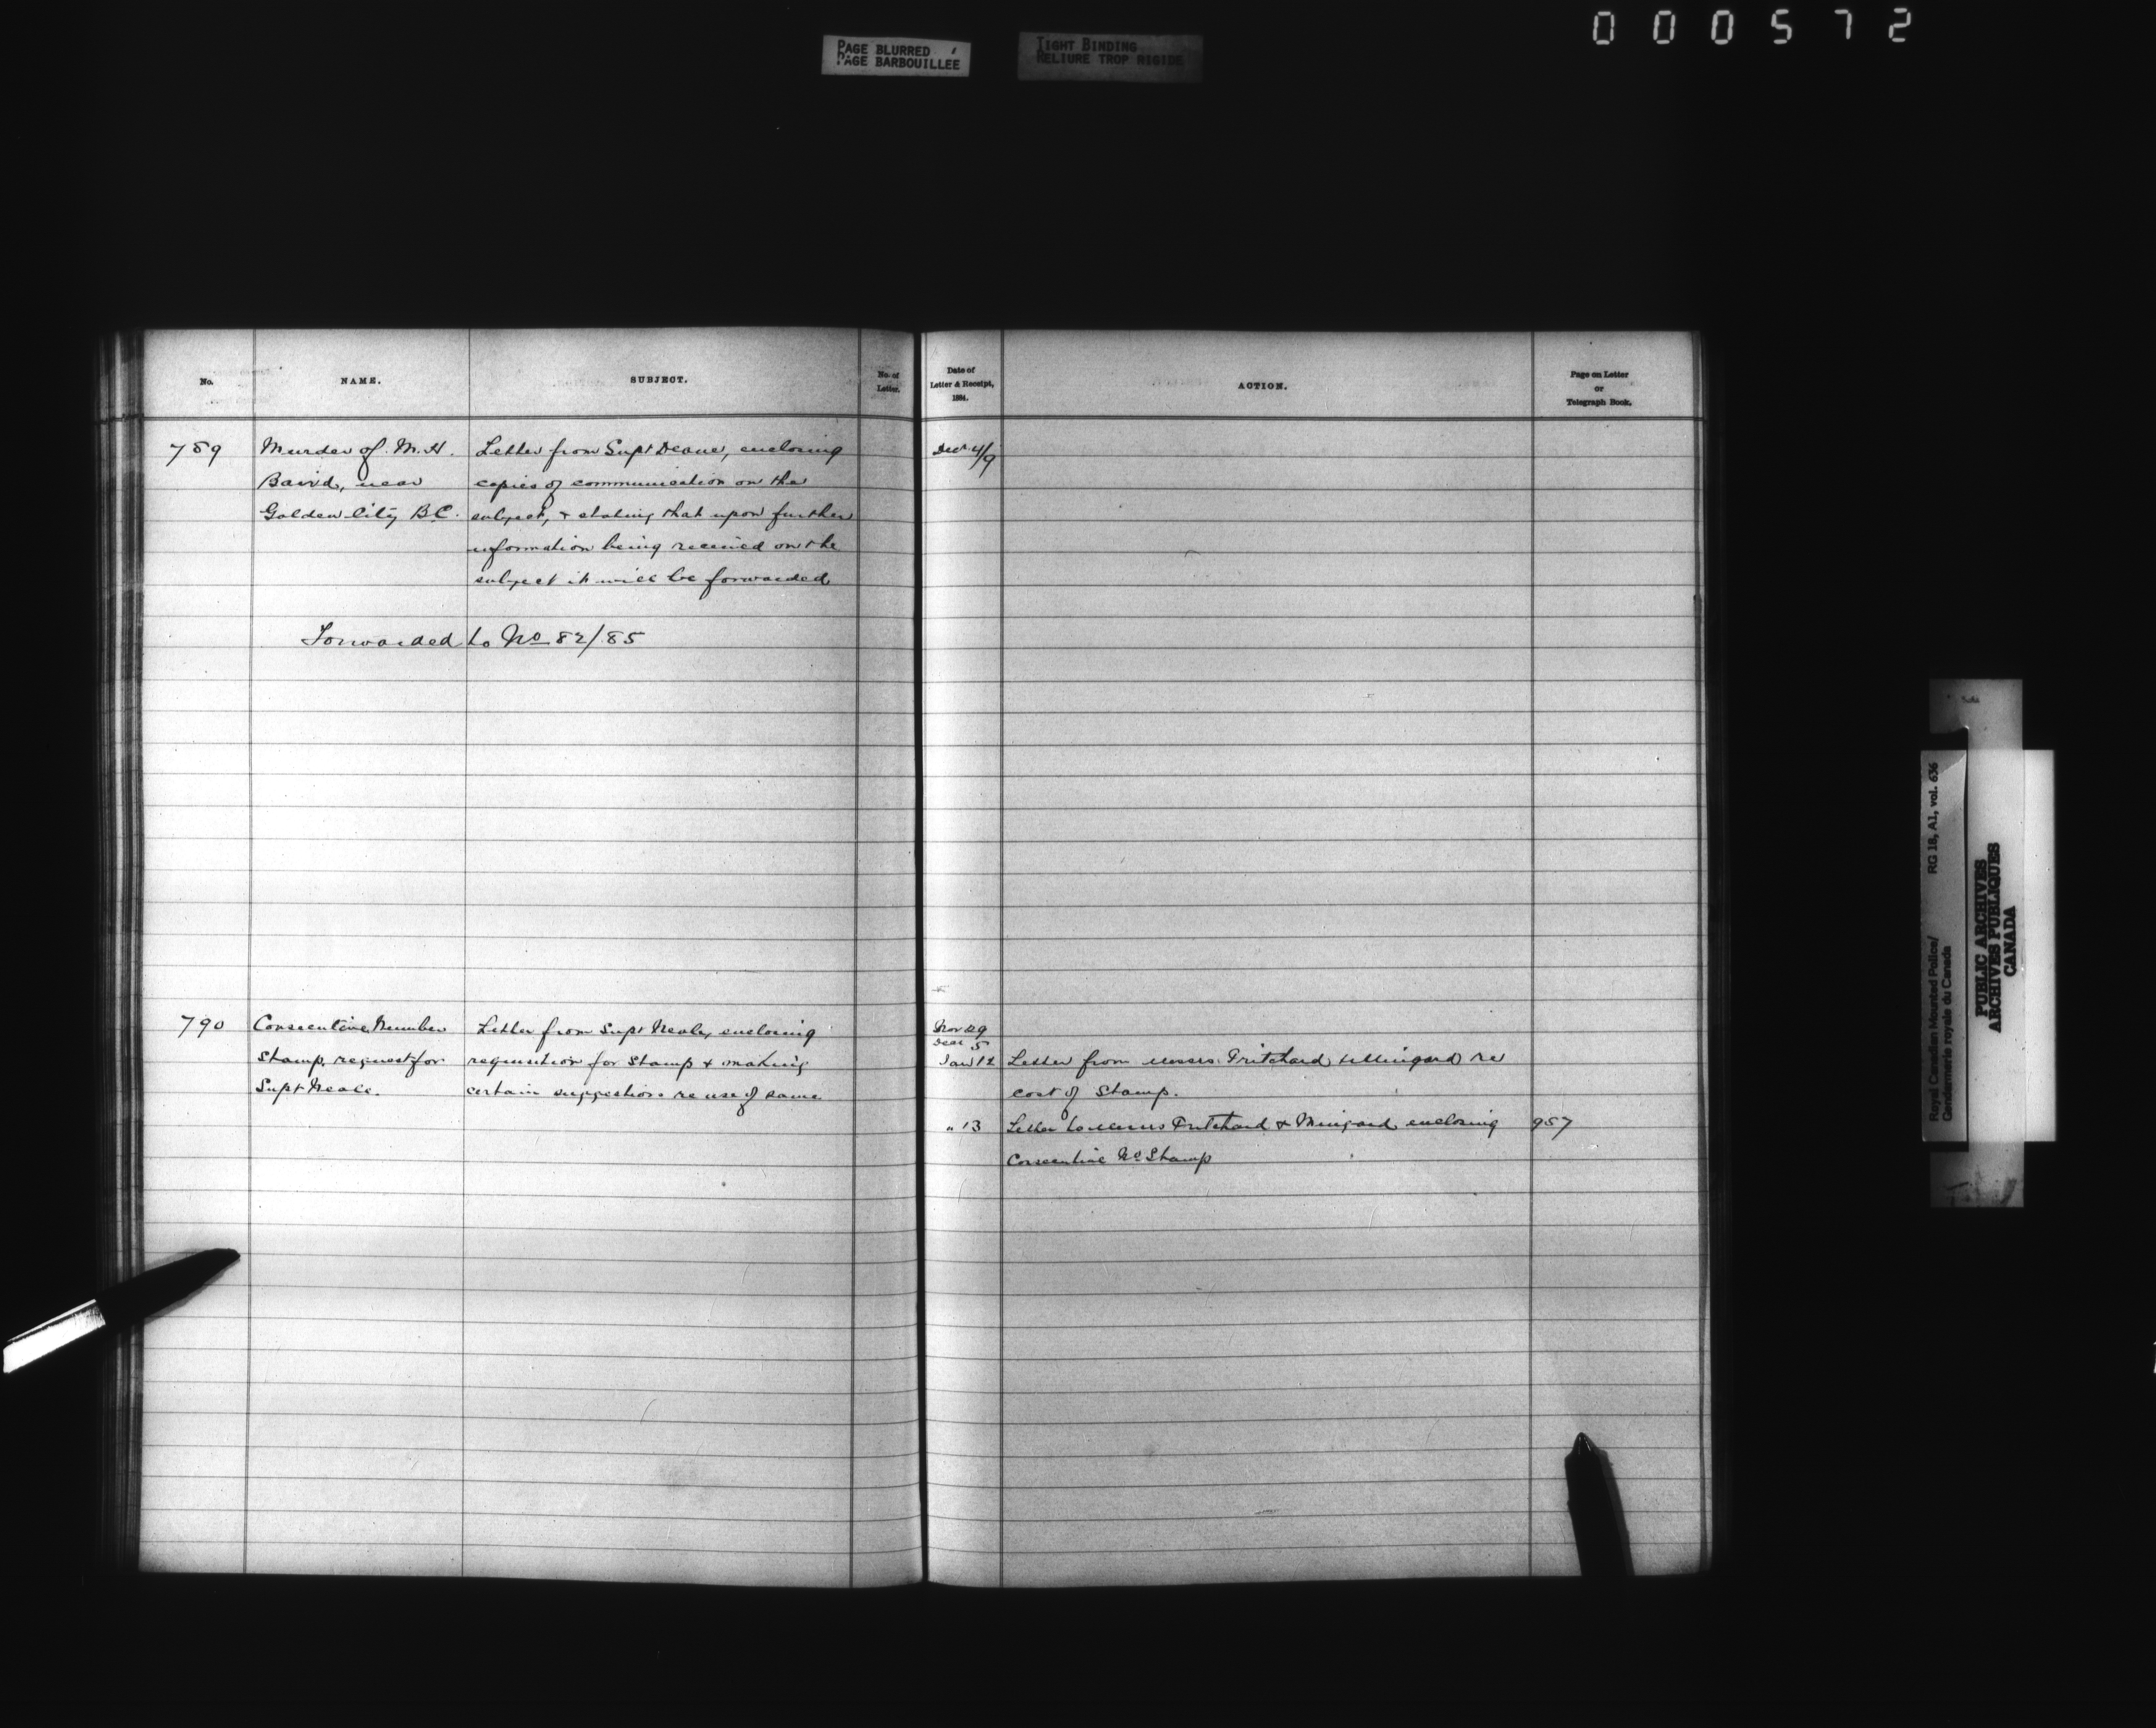 000572
PAGE BLURRED
PAGE BARBOUILLÉE
TIGHT BINDING
RELIURE TROP RIGIDE
No. NAME. SUBJECT. No. of Letter. Date of Letter & Receipt, 1884. ACTION. Page on Letter or Telegraph Book.
789 Murder of M. H. Letter from Supt Deane, enclosing Decr 4/9
Baird, near copies of communication on the
Golden City B.C. subject, & stating that upon further
information being received on the
subject it will be forwarded
Forwarded to No 82/85
790 Consecutive Number Letter from Supt Neale, enclosing Nov 29
Decr 5
Stamp, request for requisition for Stamp & making Jan 12 Letter from Messrs. Pritchard & Mingard re
Supt Neale. certain suggestions re use of same cost of Stamp.
" 13 Letter to Messrs Pritchard & Mingard enclosing 957
Consecutive No Stamp
Royal Canadian Mounted Police/
Gendarmerie royale du Canada
RG 18, A1, vol. 636
PUBLIC ARCHIVES
ARCHIVES PUBLIQUES
CANADA